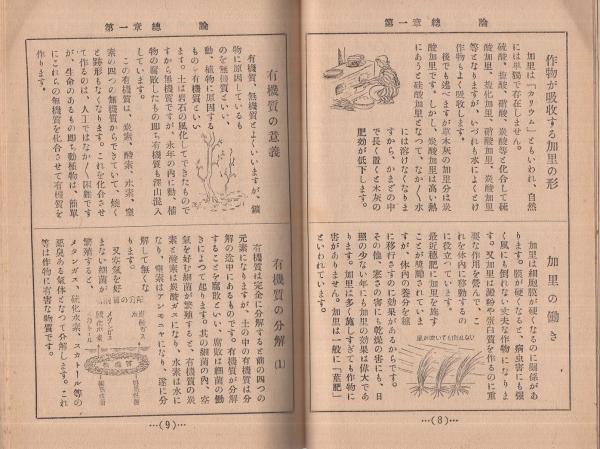 第一章 總論
作物が吸收する加里の形
加里は「カリウム」ともいわれ、自然
には單獨で存在しません。
硫酸、鹽酸、硝酸、炭酸等と化合して硫
酸加里、鹽化加里、硝酸加里、炭酸加里
等となりますが、いづれも水によくとけ
作物もよく吸收します。
後でも述べますが草木灰の加里分は炭
酸加里です。しかし、炭酸加里は高い熱
にあうと硅酸加里となつて、なか〳〵水
には溶けなくなりま
すから、かまどの中
で長く置くと木灰の
肥効が低下します。
加里の働き
加里は細胞膜が硬くなるのに關係があ
ります。膜が硬くなると、病虫害にも强
く風にも倒れない丈夫な作物になりま
す。又加里は澱粉や蛋白質を作るのに重
要な作用を營んで、こ
れを体内に移動するの
に役立ています。
最近穂肥に加里を施す
ことが呼噺されていま
すが、体内の養分を穂
に移行さすのに効果があるからです。
その他、寒さの害にも乾燥の害にも、日
照の少ない年にも加里の効果は偉大であ
ります。加里は多く施しすぎても作物に
害がありません。加里は一般に「莖肥」
といわれています。
風が吹いても倒れない
…(8)…
第一章 總論
有機質の意義
有機質、無機質とよくいいますが、鑛
物に原因しているも
のを無機質といい、
動、植物に原因する
ものを有機質といい
ます。土は岩石の風化してできたもので
すから無機質ですが、永年の内に動、植
物の腐敗したもの即ち有機質も澤山混入
しています。
この有機質は、炭素、酸素、水素、窒
素の四つの無機質からできていて、燒く
と跡形もなくなります。これを化合させ
て作るのは、人工ではなか〳〵困難です
が、生命のあるもの即ち動植物は、簡單
にこれらの無機質を化合させて有機質を
作ります。
有機質の分解(1)
有機質は完全に分解すると前の四つの
元素になりますが、土の中の有機質は分
解の途中にあるものです。有機質が分解
することを腐敗といい、腐敗は細菌の働
きによつて起ります。其の細菌の內、空
氣を好む細菌が繁殖すると、有機質の炭
素と酸素は炭酸ガスになり、水素は水に
なり、窒素はアンモニヤになり、遂に分
解して無くな
ります。
又空氣を好
まない細菌が
繁殖すると、
メタンガス、硫化水素、スカトール等の
悪臭ある氣体となつて分解します。これ
等は作物に有害な物質です。
…(9)…